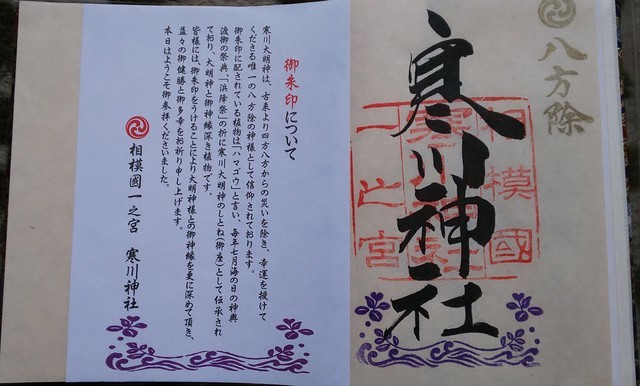 八方除
寒川神社
相模國
一之宮
御朱印について
寒川大明神は、古来より四方八方からの災いを除き、幸運を授けて
くださる唯一の八方除の神様として信仰されて居ります。
御朱印に配されている植物は「ハマゴウ」と言い、毎年七月海の日の神輿
渡御の祭典、「浜降祭」の折に寒川大明神のしとね(御座)として伝承され
て居り、大明神と御神縁深き植物です。
皆様には、御朱印をうけることにより大明神様との御神縁を更に深めて頂き、
益々の御健勝と御多幸をお祈り申し上げます。
本日はようこそ御参拝くださいました。
相模國一之宮 寒川神社